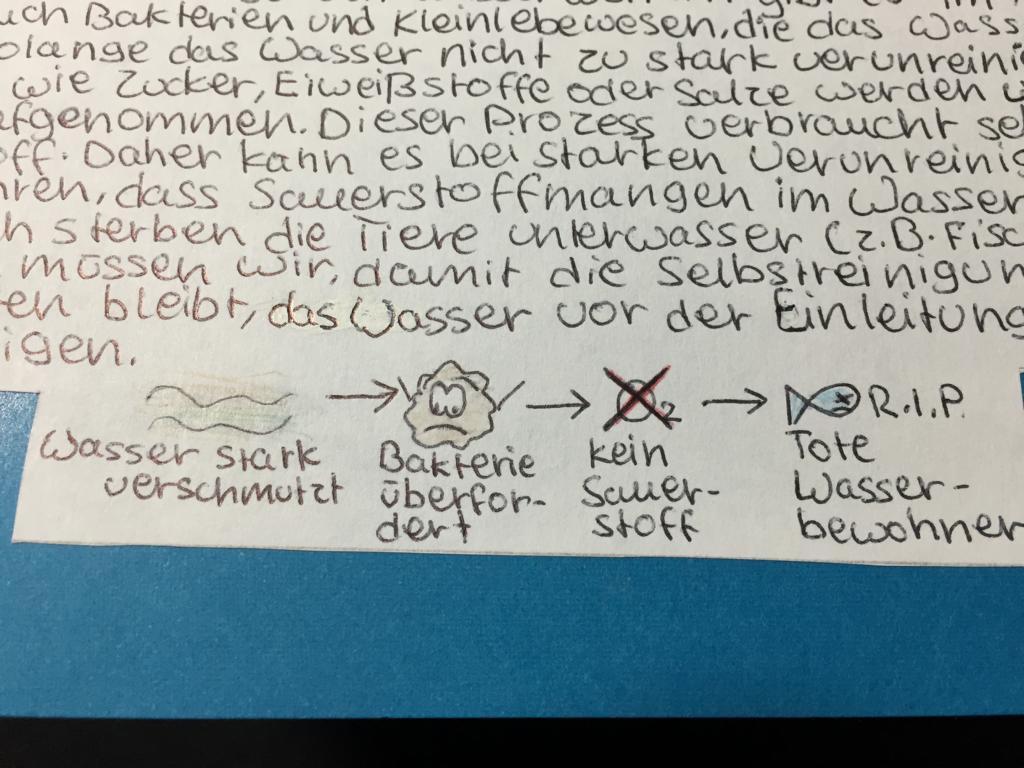 uch Bakterien und Kleinlebewesen, die das Wass
olange das Wasser nicht zu stark verunreini
wie Zucker, Eiweißstoffe oder Salze werden
fgenommen. Dieser Prozess verbraucht se
off. Daher kann es bei starken Verunreinig
hren, dass Sauerstoffmangen im Wasser
h sterben die Tiere unterwasser (z.B. Fisc
müssen wir, damit die Selbstreinigun
en bleibt, das Wasser vor der Einleitung
igen.
O2 R.I.P.
Wasser stark verschmutzt
Bakterie überfor-
dert
kein Sauer-
stoff
Tote Wasser-
bewohner